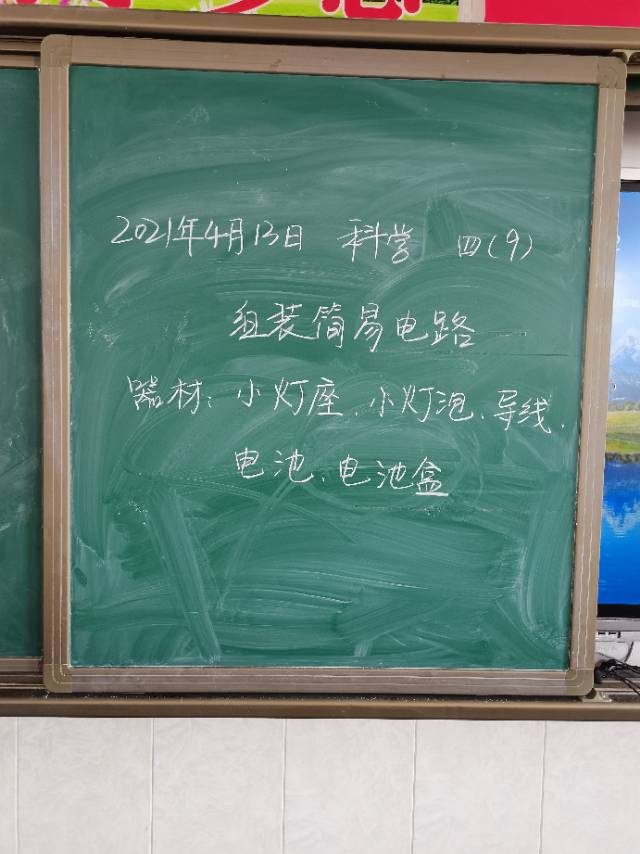 2021年4月13日 科学 四(9)
组装简易电路
器材：小灯座、小灯泡、导线、
电池、电池盒